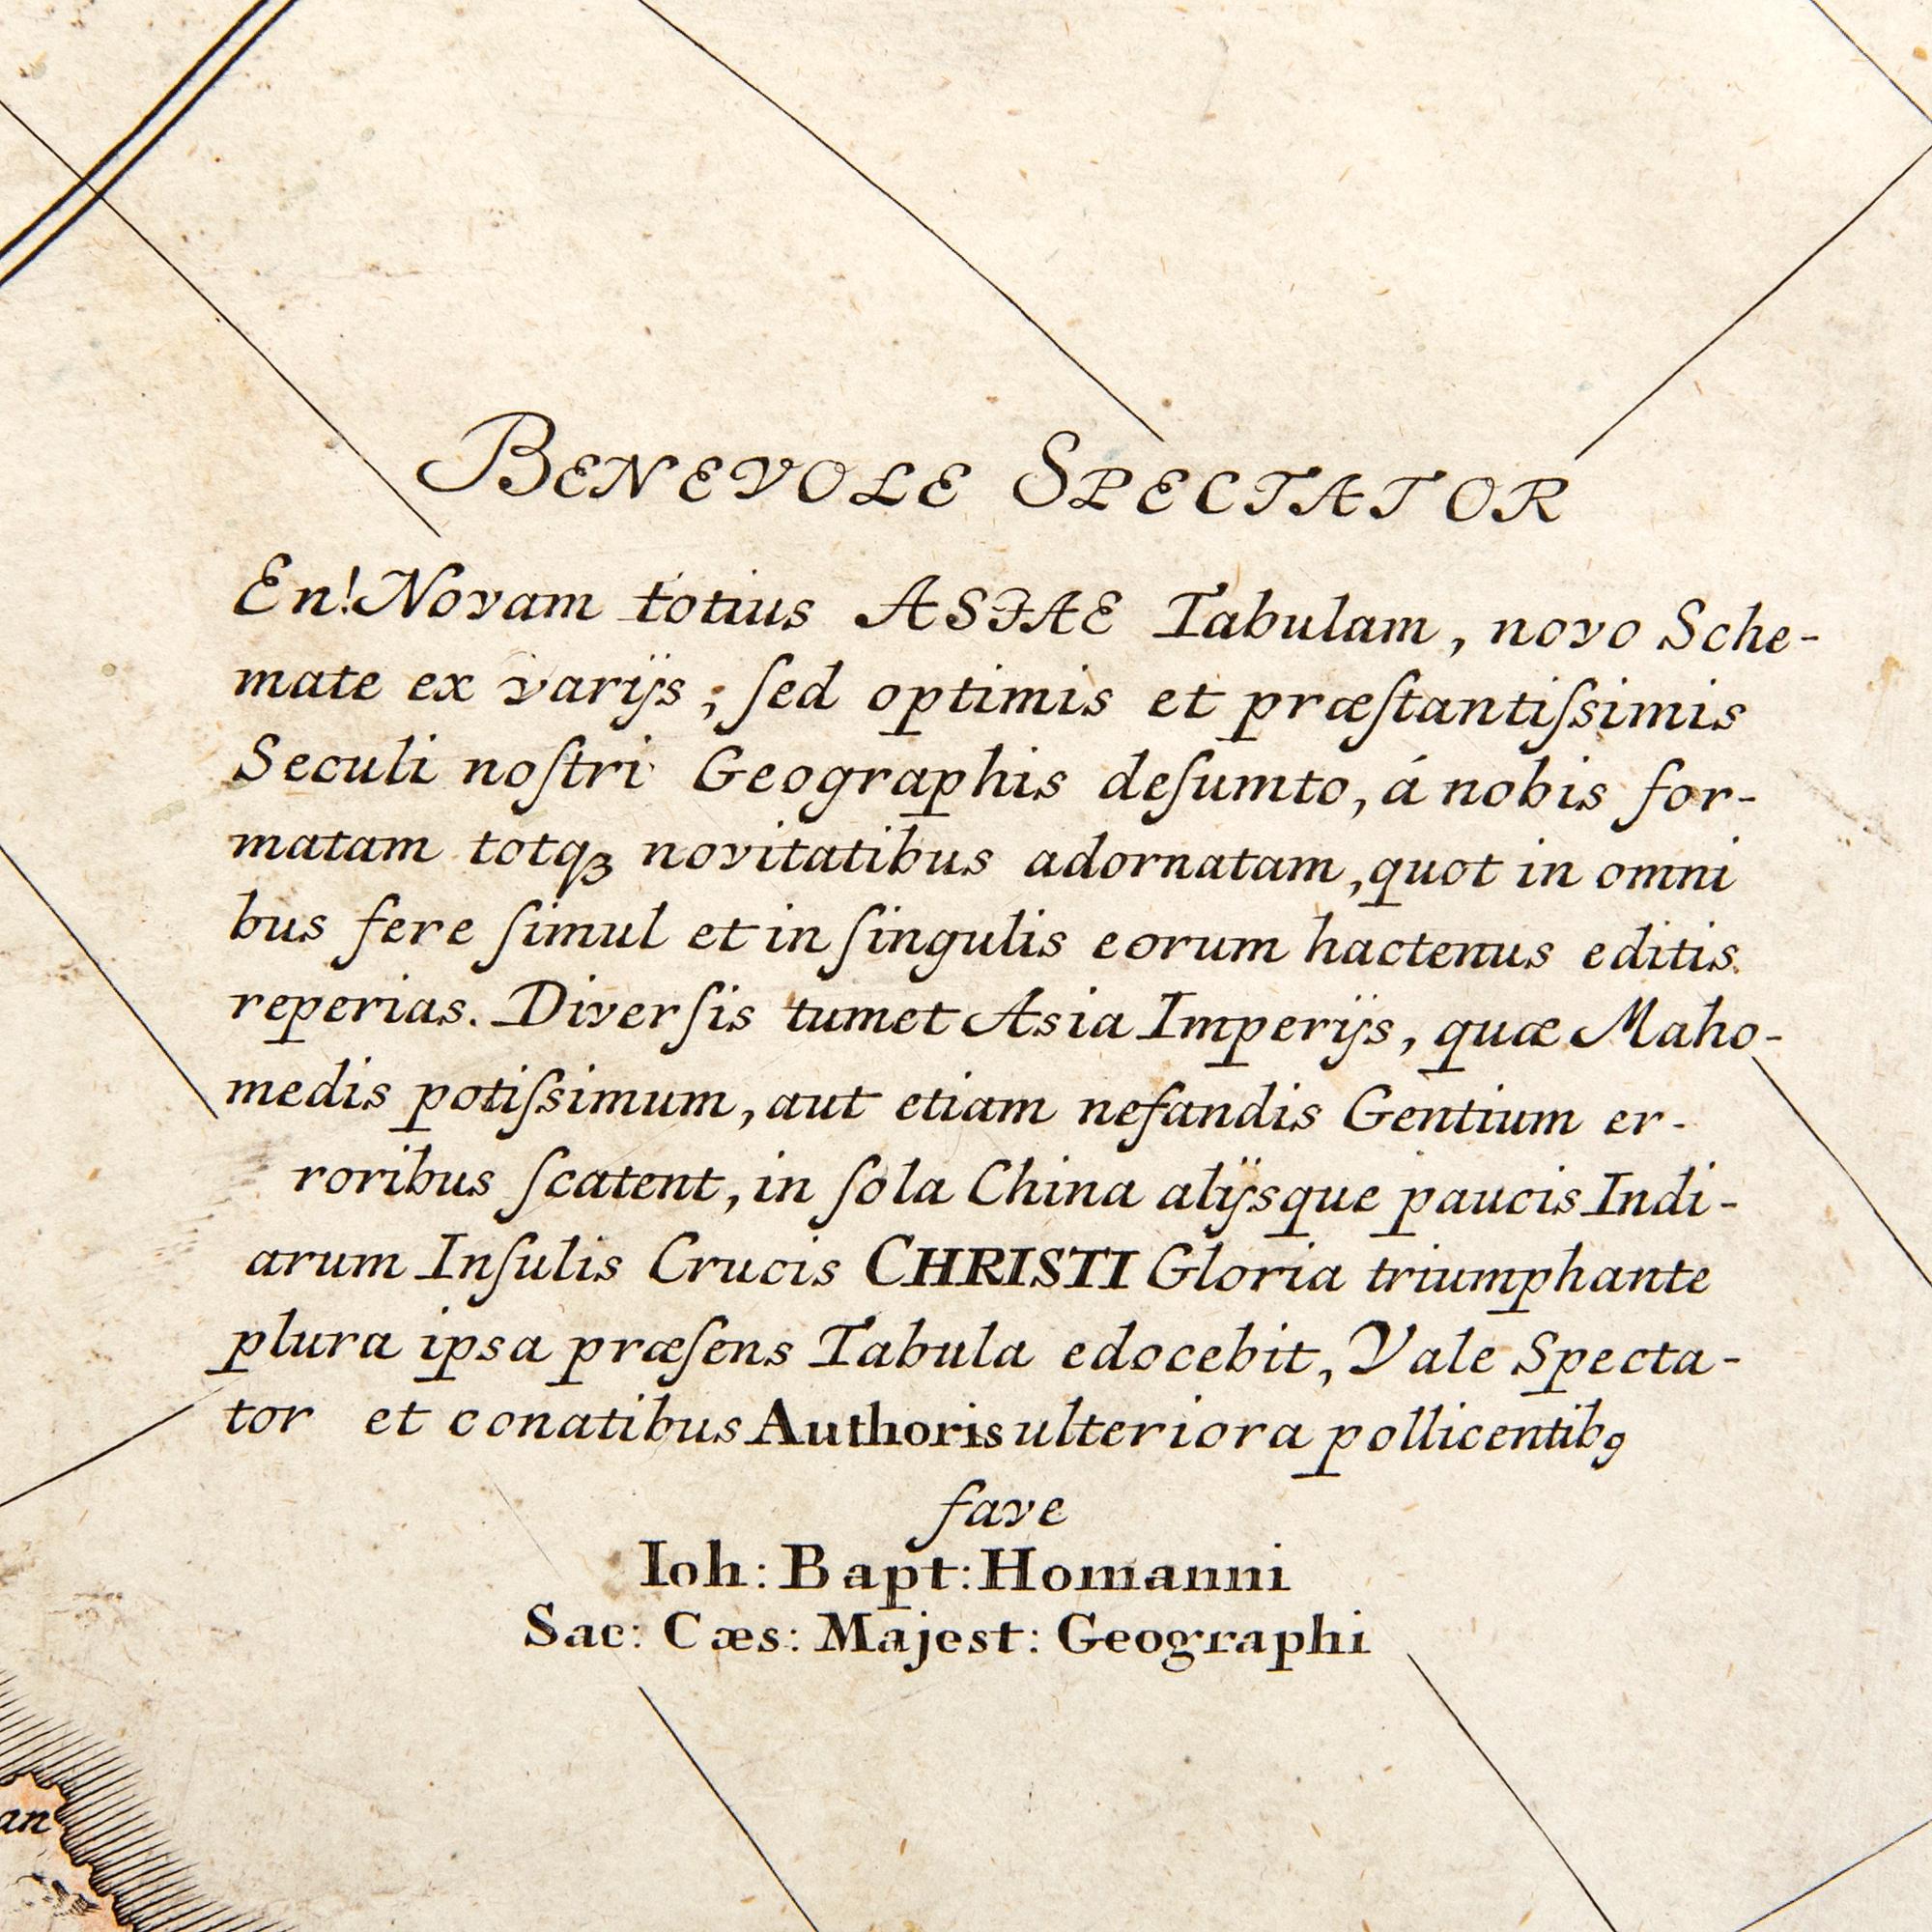 BENEVOLE SPECTATOR
En! Novam totius ASIAE Tabulam, novo Sche-
mate ex varijs, ſed optimis et præſtantiſsimis
Seculi noſtri Geographis deſumto, á nobis for-
matam totqꝫ novitatibus adornatam, quot in omni
bus fere ſimul et in ſingulis eorum hactenus editis
reperias. Diverſis tumet Asia Imperijs, quæ Maho-
medis potiſsimum, aut etiam nefandis Gentium er-
roribus ſcatent, in ſola China alijsque paucis Indi-
arum Inſulis Crucis CHRISTI Gloria triumphante
plura ipsa præſens Tabula edocebit, Vale Specta-
tor et conatibus Authoris ulteriora pollicentibꝯ
fave
Ioh: Bapt: Homanni
Sac: Cæs: Majest: Geographi
an